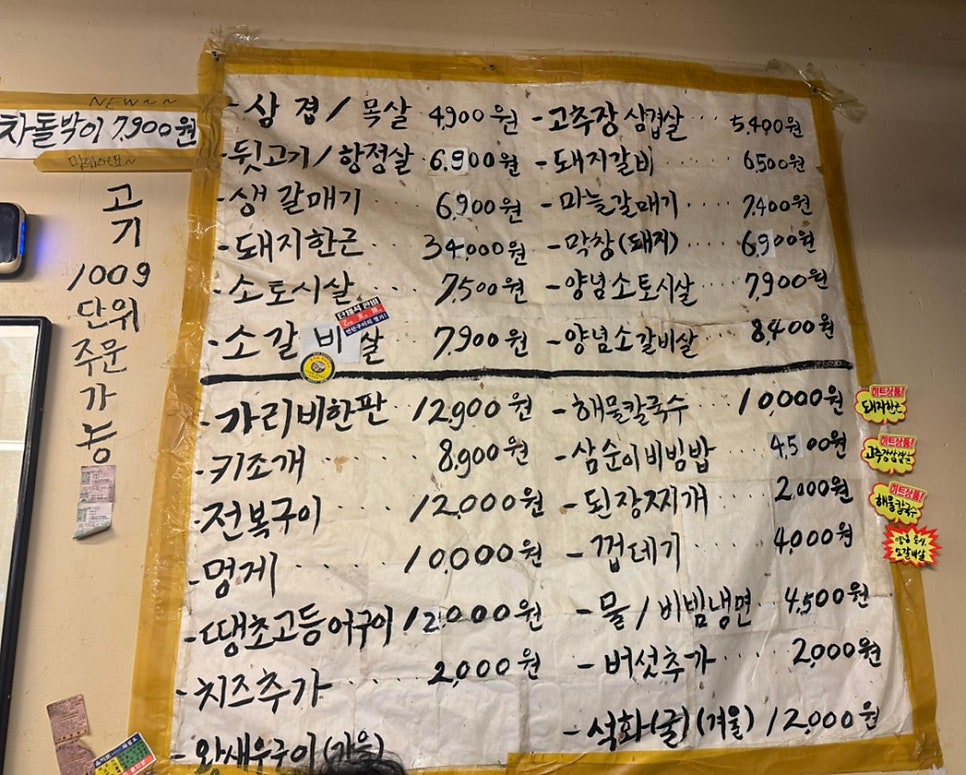 NEW~~
차돌박이 7,900원
고기 100g 단위 주문 가능
- 삼겹 / 목살 4,900원
- 뒷고기 / 항정살 6,900원
- 생갈매기 6,900원
- 돼지한근 34,000원
- 소토시살 7,500원
- 소갈비살 7,900원
- 고추장 삼겹살 5,400원
- 돼지갈비 6,500원
- 마늘갈매기 7,400원
- 막창(돼지) 6,900원
- 양념소토시살 7,900원
- 양념소갈비살 8,400원
- 가리비한판 12,900원
- 키조개 8,900원
- 전복구이 12,000원
- 멍게 10,000원
- 땡초고등어구이 12,000원
- 치즈추가 2,000원
- 왕새우구이 (가을)
- 해물칼국수 10,000원
- 삼순이비빔밥 4,500원
- 된장찌개 2,000원
- 껍데기 4,000원
- 물 / 비빔냉면 4,500원
- 버섯추가 2,000원
- 석화(굴)(겨울) 12,000원
히트상품!
돼지한근
히트상품!
고추장삼겹살
히트상품!
해물칼국수
소갈비살